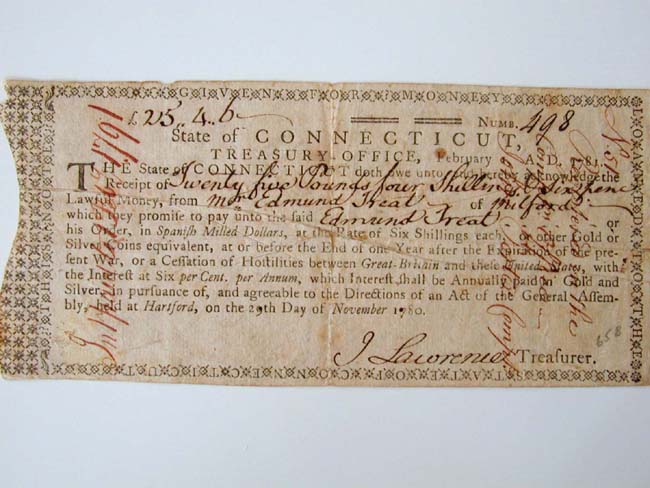 GIVEN FOR MONEY
£25.4.6
NUMB. 498
State of CONNECTICUT,
TREASURY-OFFICE, February A.D. 1781.
THE State of CONNECTICUT doth owe unto and hereby acknowledge the
Receipt of Twenty five Pounds four Shillings & Six pence
Lawful Money, from Mr Edmund Treat of Milford
which they promise to pay unto the said Edmund Treat or
his Order, in Spanish Milled Dollars, at the Rate of Six Shillings each, or other Gold or
Silver Coins equivalent, at or before the End of one Year after the Expiration of the pre-
sent War, or a Cessation of Hostilities between Great-Britain and these United States, with
the Interest at Six per Cent. per Annum, which Interest shall be Annually paid in Gold and
Silver, in pursuance of, and agreeable to the Directions of an Act of the General Assem-
bly, held at Hartford, on the 29th Day of November 1780.
J Lawrence Treasurer.
658
LOANED TO THE
STATE OF CONNECTICUT
IN THIS